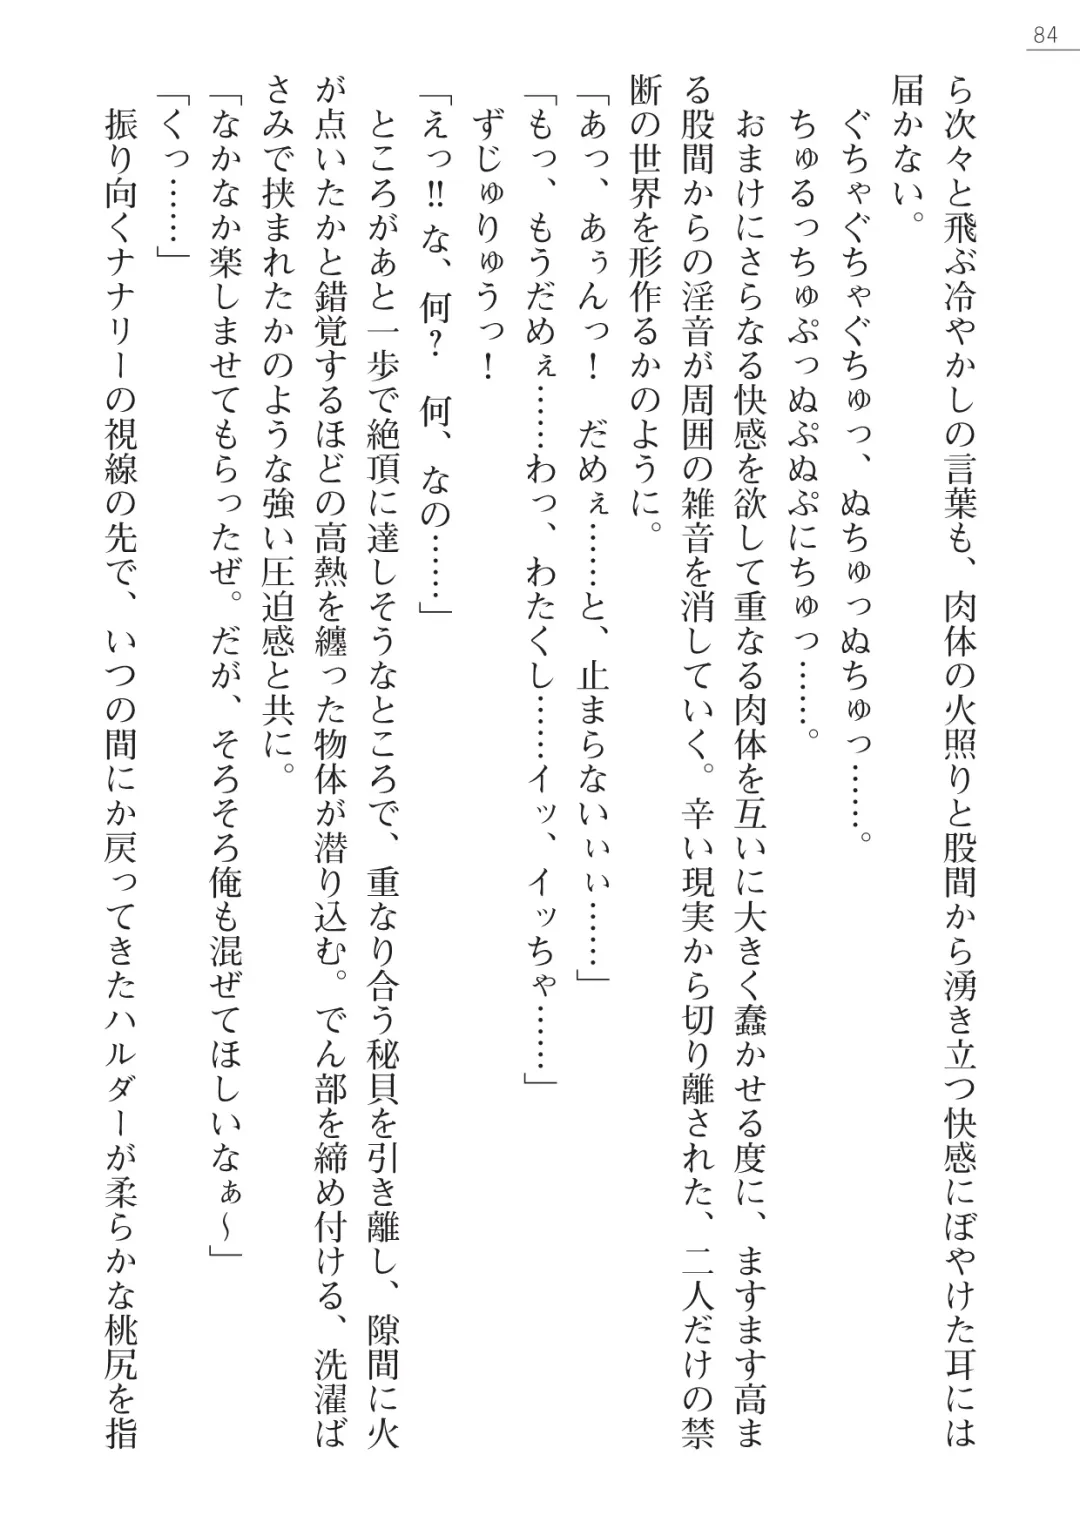 84
ら次々と飛ぶ冷やかしの言葉も、肉体の火照りと股間から湧き立つ快感にぼやけた耳には
届かない。
ぐちゃぐちゃぐちゅっ、ぬちゅっぬちゅっ……。
ちゅるっちゅぷっぬぷぬぷにちゅっ……。
おまけにさらなる快感を欲して重なる肉体を互いに大きく蠢かせる度に、ますます高ま
る股間からの淫音が周囲の雑音を消していく。辛い現実から切り離された、二人だけの禁
断の世界を形作るかのように。
「あっ、あぅんっ！　だめぇ……と、止まらないぃぃ……」
「もっ、もうだめぇ……わっ、わたくし……イッ、イッちゃ……」
ずじゅりゅうっ！
「えっ!! な、何？　何、なの……」
ところがあと一歩で絶頂に達しそうなところで、重なり合う秘貝を引き離し、隙間に火
が点いたかと錯覚するほどの高熱を纏った物体が潜り込む。でん部を締め付ける、洗濯ば
さみで挟まれたかのような強い圧迫感と共に。
「なかなか楽しませてもらったぜ。だが、そろそろ俺も混ぜてほしいなぁ～」
「くっ……」
振り向くナナリーの視線の先で、いつの間にか戻ってきたハルダーが柔らかな桃尻を指